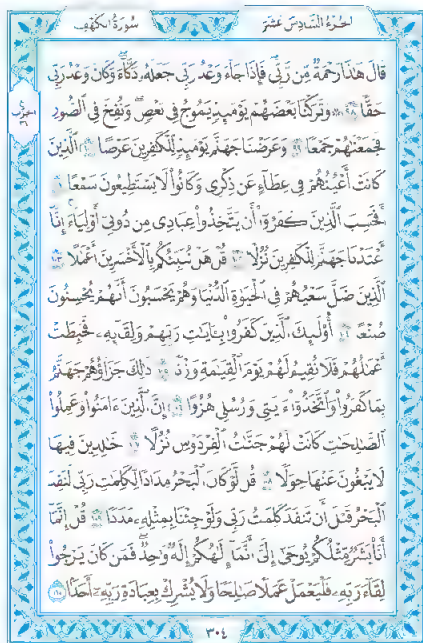 الجزء السادس عشر
سورة الكهف
قَالَ هَٰذَا رَحْمَةٌ مِّن رَّبِّي فَإِذَا جَاءَ وَعْدُ رَبِّي جَعَلَهُ دَكَّاءَ وَكَانَ وَعْدُ رَبِّي
حَقًّا ٩٨ وَتَرَكْنَا بَعْضَهُمْ يَوْمَئِذٍ يَمُوجُ فِي بَعْضٍ وَنُفِخَ فِي الصُّورِ
فَجَمَعْنَٰهُمْ جَمْعًا ٩٩ وَعَرَضْنَا جَهَنَّمَ يَوْمَئِذٍ لِّلْكَٰفِرِينَ عَرْضًا ١٠٠ الَّذِينَ
كَانَتْ أَعْيُنُهُمْ فِي غِطَاءٍ عَن ذِكْرِي وَكَانُوا لَا يَسْتَطِيعُونَ سَمْعًا ١٠١
أَفَحَسِبَ الَّذِينَ كَفَرُوا أَن يَتَّخِذُوا عِبَادِي مِن دُونِي أَوْلِيَاءَ إِنَّا
أَعْتَدْنَا جَهَنَّمَ لِلْكَٰفِرِينَ نُزُلًا ١٠٢ قُلْ هَلْ نُنَبِّئُكُم بِالْأَخْسَرِينَ أَعْمَٰلًا ١٠٣
الَّذِينَ ضَلَّ سَعْيُهُمْ فِي الْحَيَوٰةِ الدُّنْيَا وَهُمْ يَحْسَبُونَ أَنَّهُمْ يُحْسِنُونَ
صُنْعًا ١٠٤ أُولَٰئِكَ الَّذِينَ كَفَرُوا بِـَٔايَٰتِ رَبِّهِمْ وَلِقَائِهِ فَحَبِطَتْ
أَعْمَٰلُهُمْ فَلَا نُقِيمُ لَهُمْ يَوْمَ الْقِيَٰمَةِ وَزْنًا ١٠٥ ذَٰلِكَ جَزَاؤُهُمْ جَهَنَّمُ
بِمَا كَفَرُوا وَاتَّخَذُوا ءَايَٰتِي وَرُسُلِي هُزُوًا ١٠٦ إِنَّ الَّذِينَ ءَامَنُوا وَعَمِلُوا
الصَّٰلِحَٰتِ كَانَتْ لَهُمْ جَنَّٰتُ الْفِرْدَوْسِ نُزُلًا ١٠٧ خَٰلِدِينَ فِيهَا
لَا يَبْغُونَ عَنْهَا حِوَلًا ١٠٨ قُل لَّوْ كَانَ الْبَحْرُ مِدَادًا لِّكَلِمَٰتِ رَبِّي لَنَفِدَ
الْبَحْرُ قَبْلَ أَن تَنفَدَ كَلِمَٰتُ رَبِّي وَلَوْ جِئْنَا بِمِثْلِهِ مَدَدًا ١٠٩ قُلْ إِنَّمَا
أَنَا بَشَرٌ مِّثْلُكُمْ يُوحَىٰ إِلَيَّ أَنَّمَا إِلَٰهُكُمْ إِلَٰهٌ وَٰحِدٌ فَمَن كَانَ يَرْجُوا
لِقَاءَ رَبِّهِ فَلْيَعْمَلْ عَمَلًا صَٰلِحًا وَلَا يُشْرِكْ بِعِبَادَةِ رَبِّهِ أَحَدًا ١١٠
٣٠٤